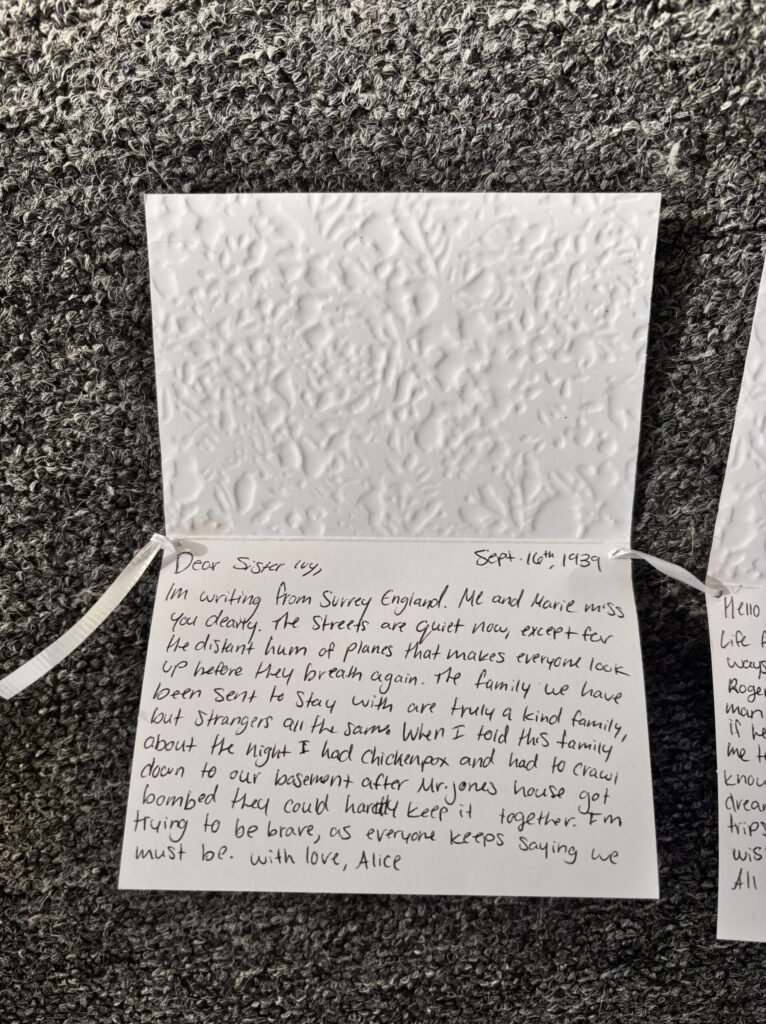 Dear Sister Ivy,
Sept. 16th, 1939
Im writing from Surrey England. Me and Marie miss
you dearly. The streets are quiet now, except for
the distant hum of planes that makes everyone look
up before they breath again. The family we have
been sent to stay with are truly a kind family,
but strangers all the same. When I told this family
about the night I had chickenpox and had to crawl
down to our basement after Mr. Jones house got
bombed they could hardly keep it together. I'm
trying to be brave, as everyone keeps saying we
must be. with love, Alice
Hello
Life
ways
Roger
man
if he
me t
know
drea
trips
wis
All